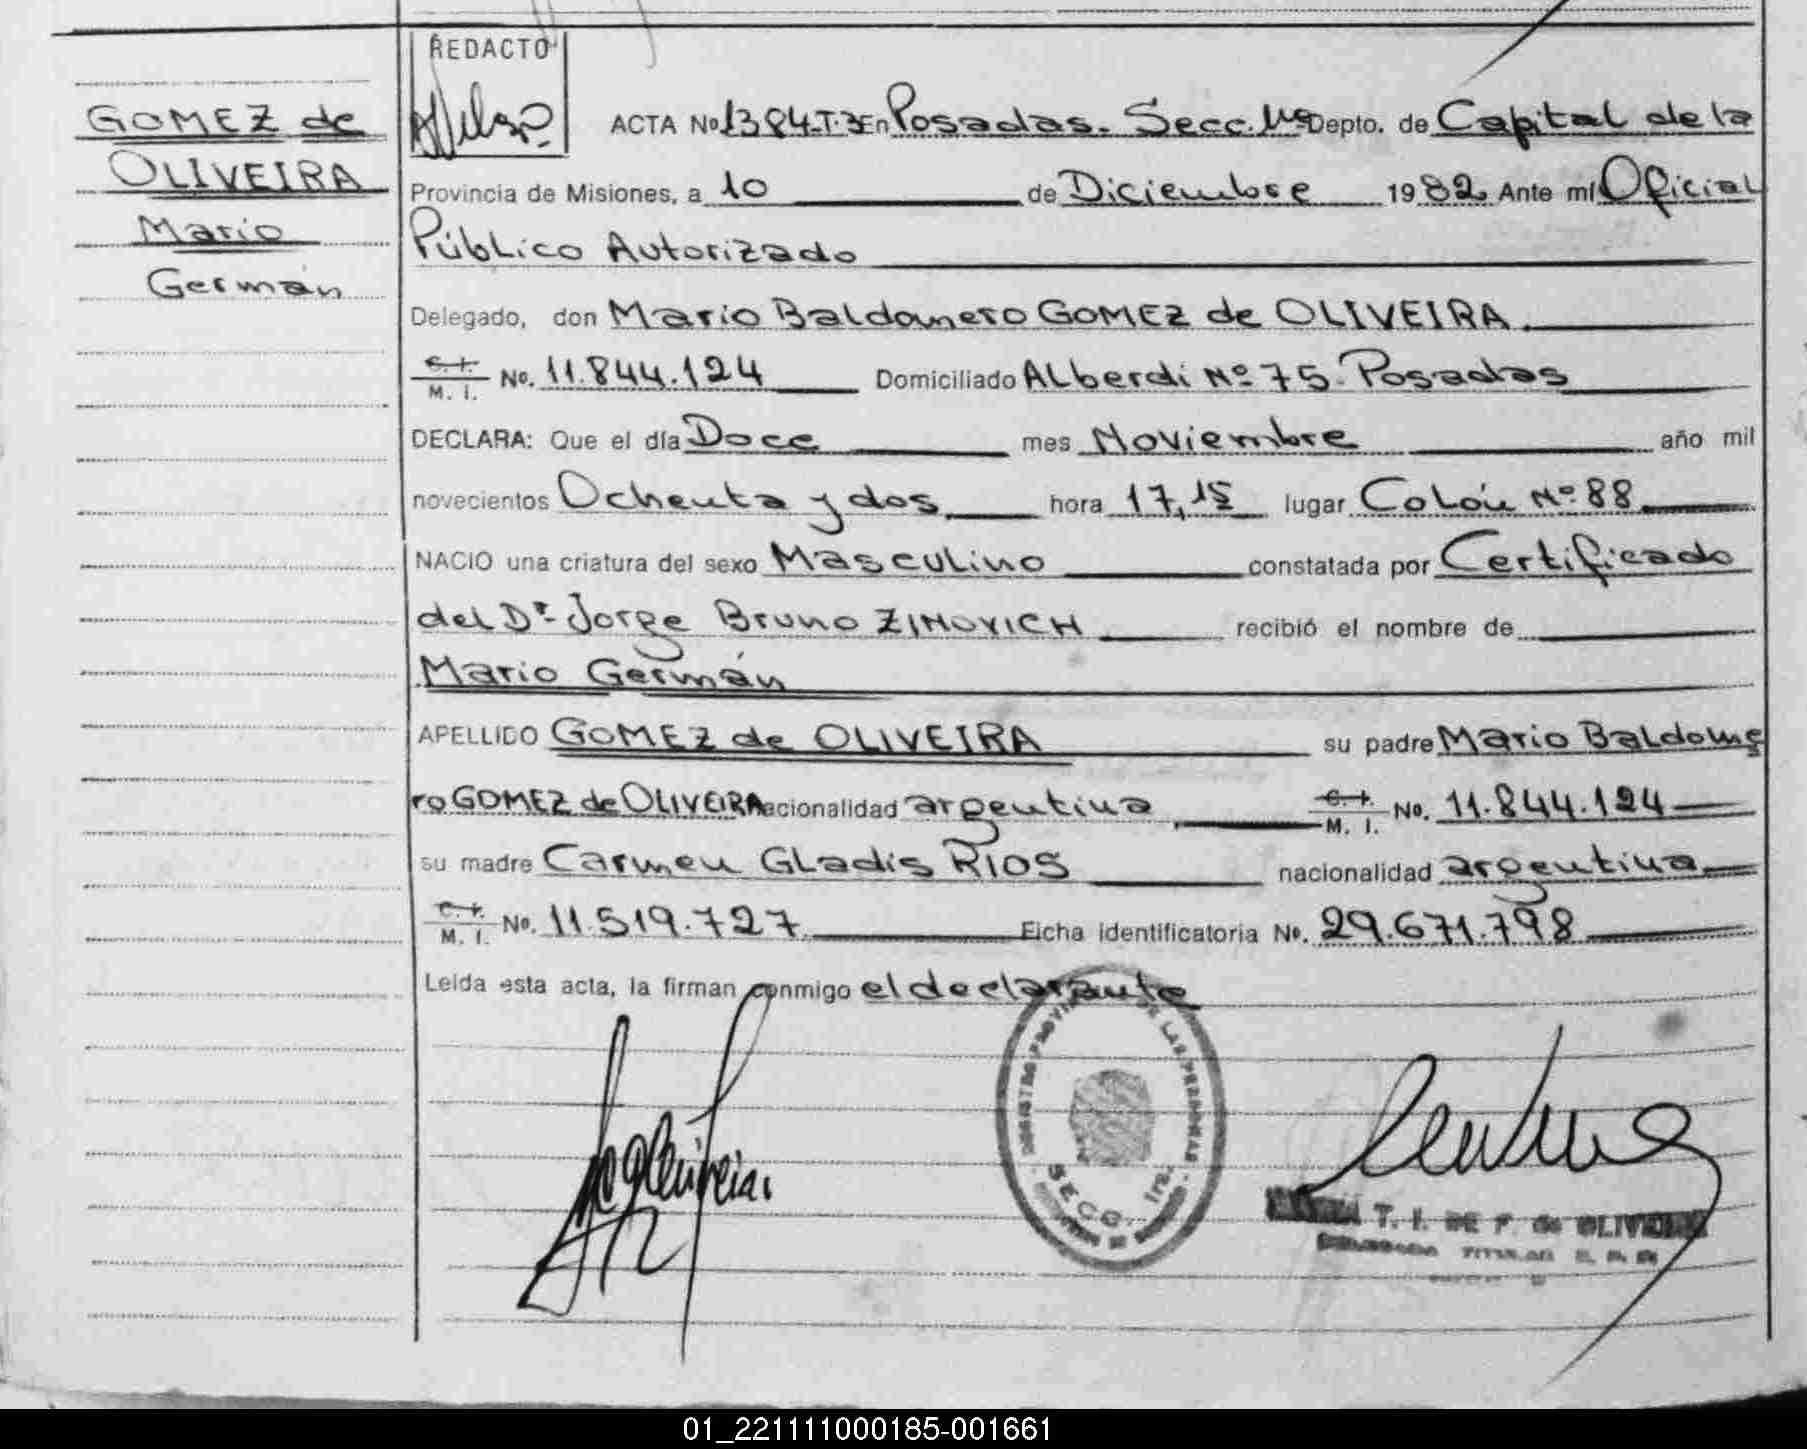 REDACTO
GOMEZ de
OLIVEIRA
Mario
Germán
ACTA Nº 1384-T-3 En Posadas. Secc. 1ª Depto. de Capital de la
Provincia de Misiones, a 10 de Diciembre 1982 Ante mí Oficial
Público Autorizado
Delegado, don Mario Baldomero GOMEZ de OLIVEIRA
C. I. M. I. No. 11.844.124 Domiciliado Alberdi Nº 75. Posadas
DECLARA: Que el día Doce mes Noviembre año mil
novecientos Ochenta y dos hora 17,15 lugar Colón Nº 88
NACIO una criatura del sexo Masculino constatada por Certificado
del Dr. Jorge Bruno ZINOVICH recibió el nombre de
Mario Germán
APELLIDO GOMEZ de OLIVEIRA su padre Mario Baldome
ro GOMEZ de OLIVEIRA nacionalidad argentina C. I. M. I. No. 11.844.124
su madre Carmen Gladis RIOS nacionalidad argentina
C. I. M. I. No. 11.519.727 Ficha identificatoria No. 29.671.798
Leída esta acta, la firman conmigo el declarante
REGISTRO PROVINCIAL DE LAS PERSONAS
SECC. 1ra.
T. I. DE F. de OLIVEIRA
TITULAR
01_221111000185-001661